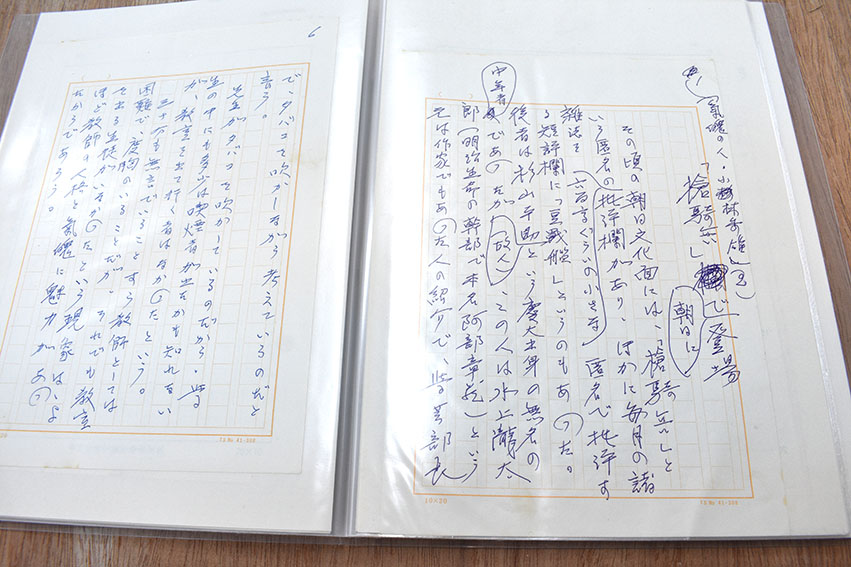 (氣魄の人・小林秀雄)(2)
「槍騎兵」で登場
朝日に
その頃の朝日文化面には、「槍騎兵」と
いう匿名の批評欄があり、ほかに毎月の諸
雑誌を六百字ぐらいの小さな匿名で批評す
る短評欄に「豆戦艦」というのもあった。
後者は杉山平助という慶大出身の無名の
中年者であったが(故人)、この人は水上瀧太
郎(明治生命の幹部で本名阿部章蔵)という
元は作家でもあった人の紹介で、学芸部長
10×20
6
で、タバコを吹かしながら考えているのだと
言う。
先生がタバコを吹かしているのだから、学
生の中にも多少は喫煙者が出たかも知れない
が、教室を出て行く者はなかったという。
三十分も無言でいることすら教師としては
困難で、度胸のいることだが、それでも教室
を出る生徒がいなかったという現象は、よ
ほど教師の人格と氣魄に魅力があっ
たからであろう。